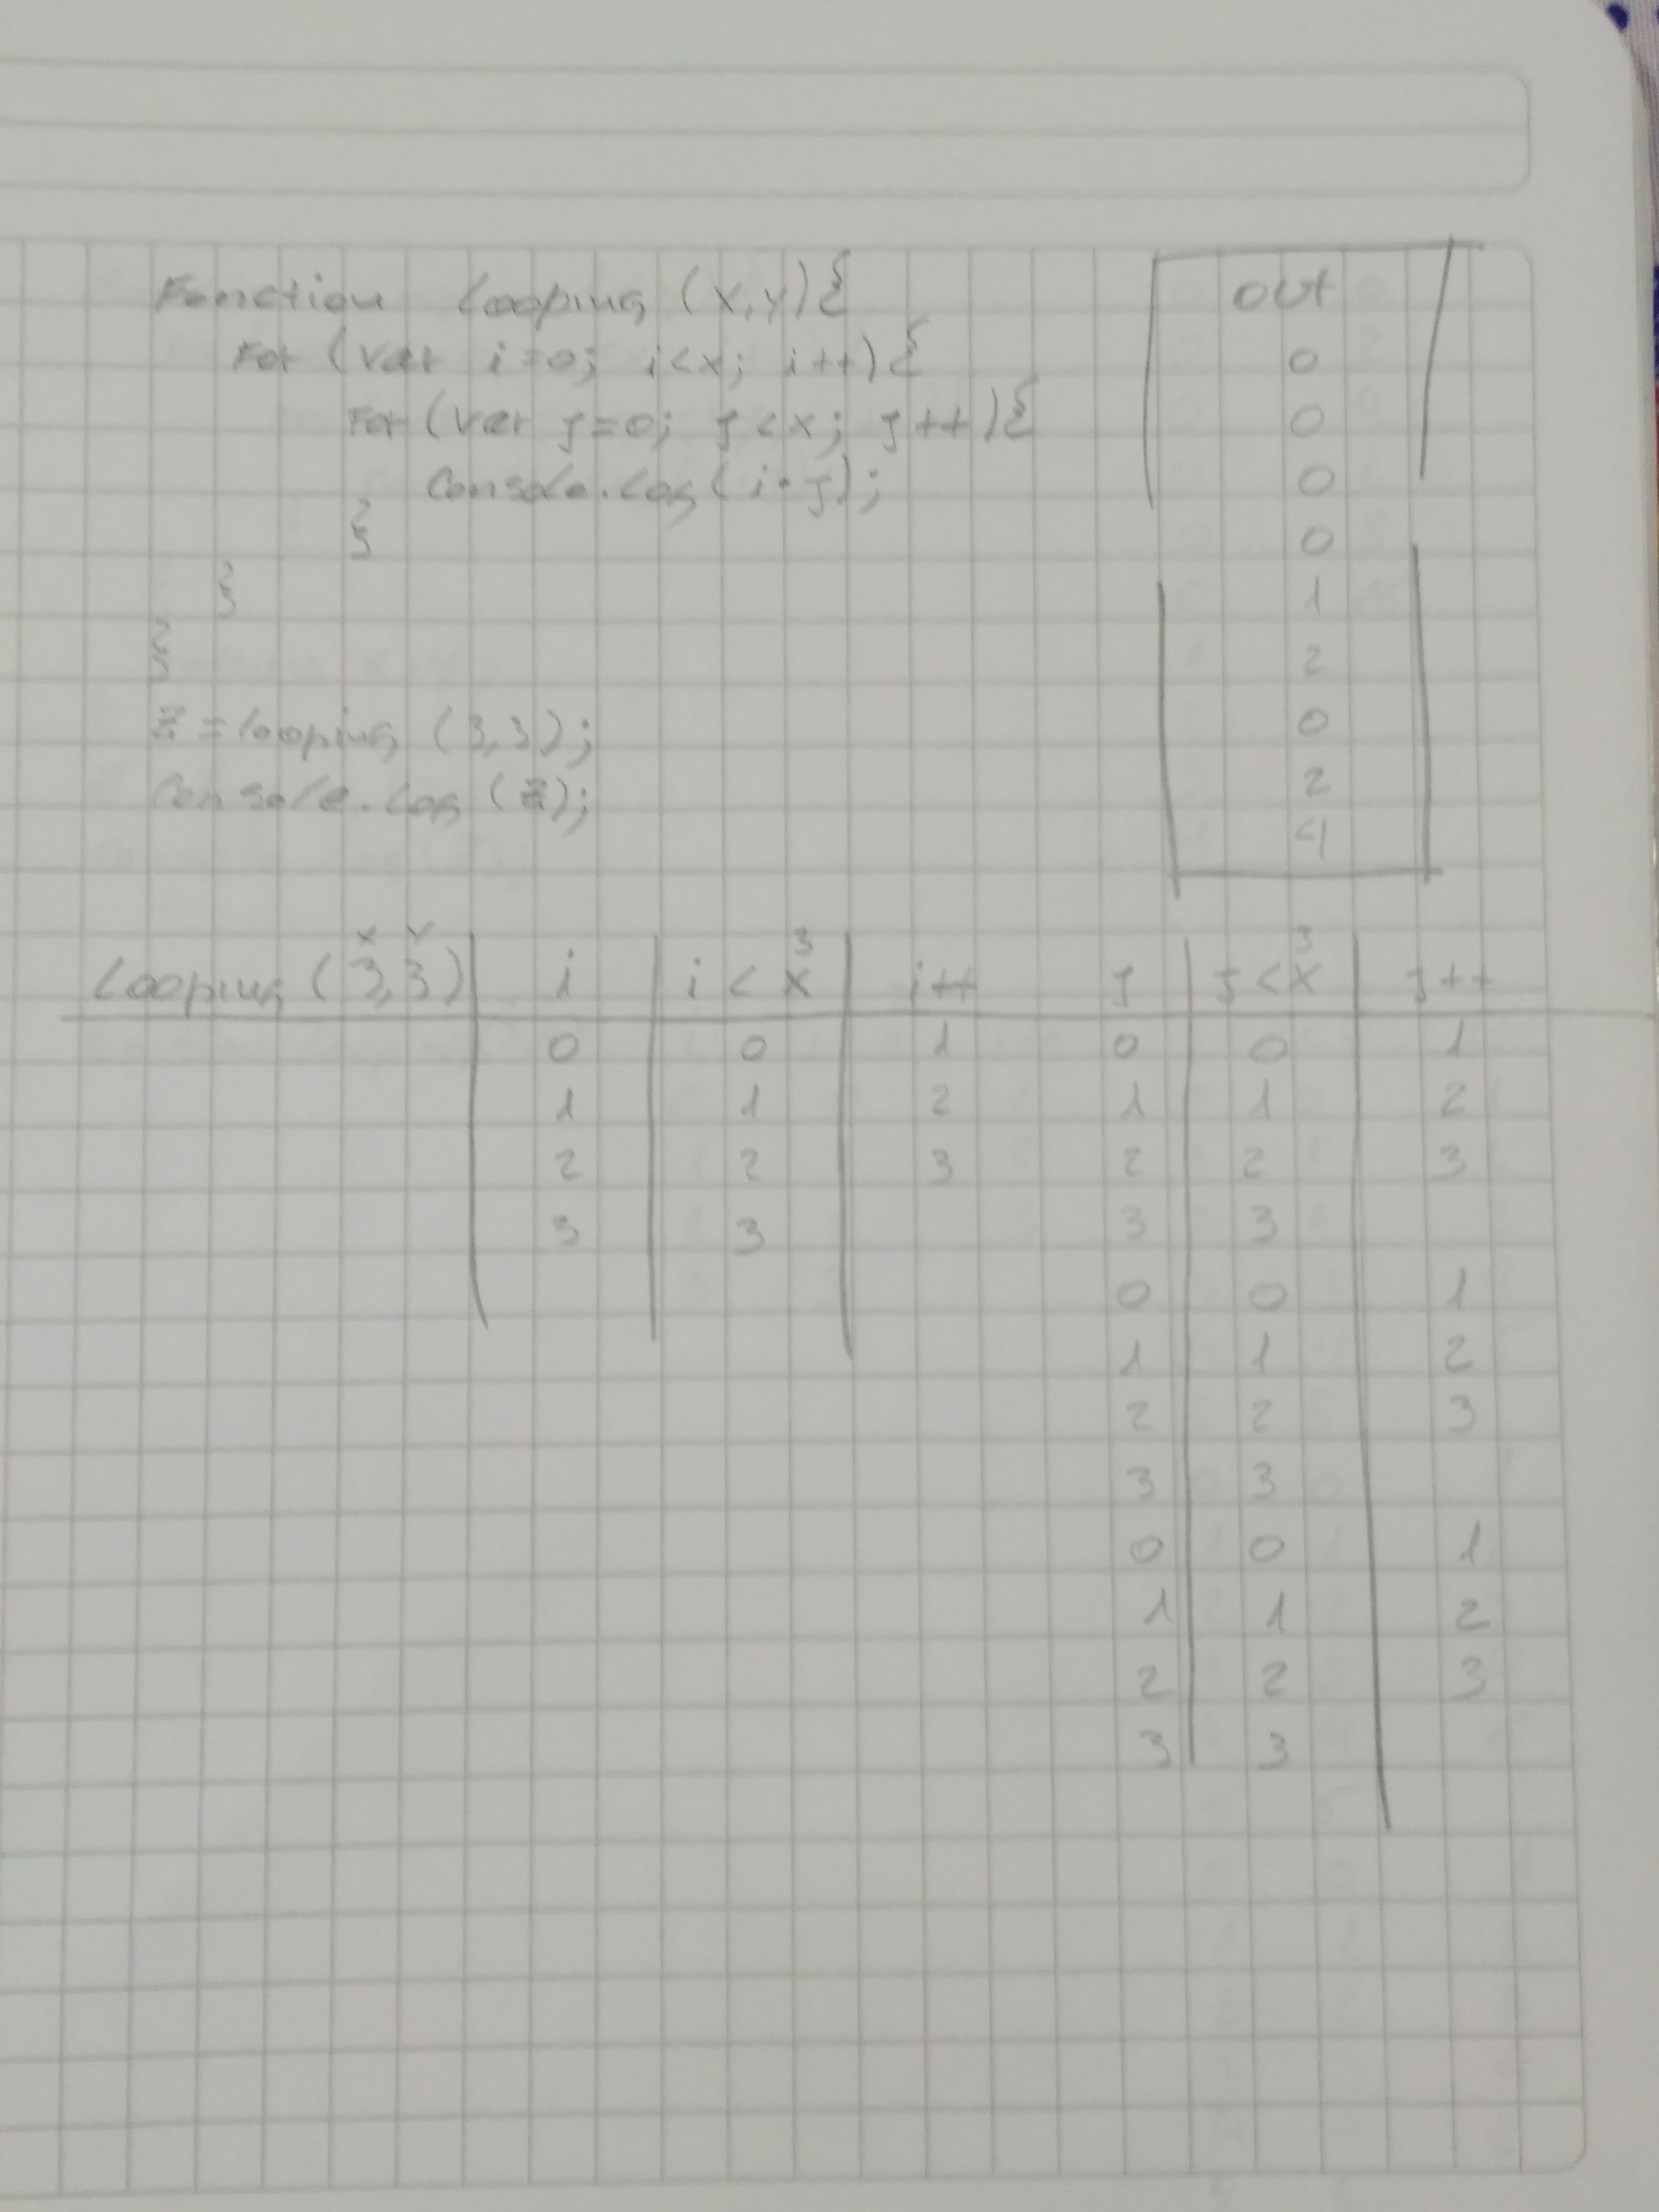 Function Looping (x,y){
For (var i=0; i<x; i++){
For (var j=0; j<x; j++){
Console.Log(i*j);
}
}
}
z = Looping (3,3);
Console.Log (z);
out
0
0
0
0
1
2
0
2
4
x y
3 3
Looping (3,3) i i < x i++ j j < x j++
0 0 1 0 0 1
1 1 2 1 1 2
2 2 3 2 2 3
3 3 3 3
0 0 1
1 1 2
2 2 3
3 3
0 0 1
1 1 2
2 2 3
3 3